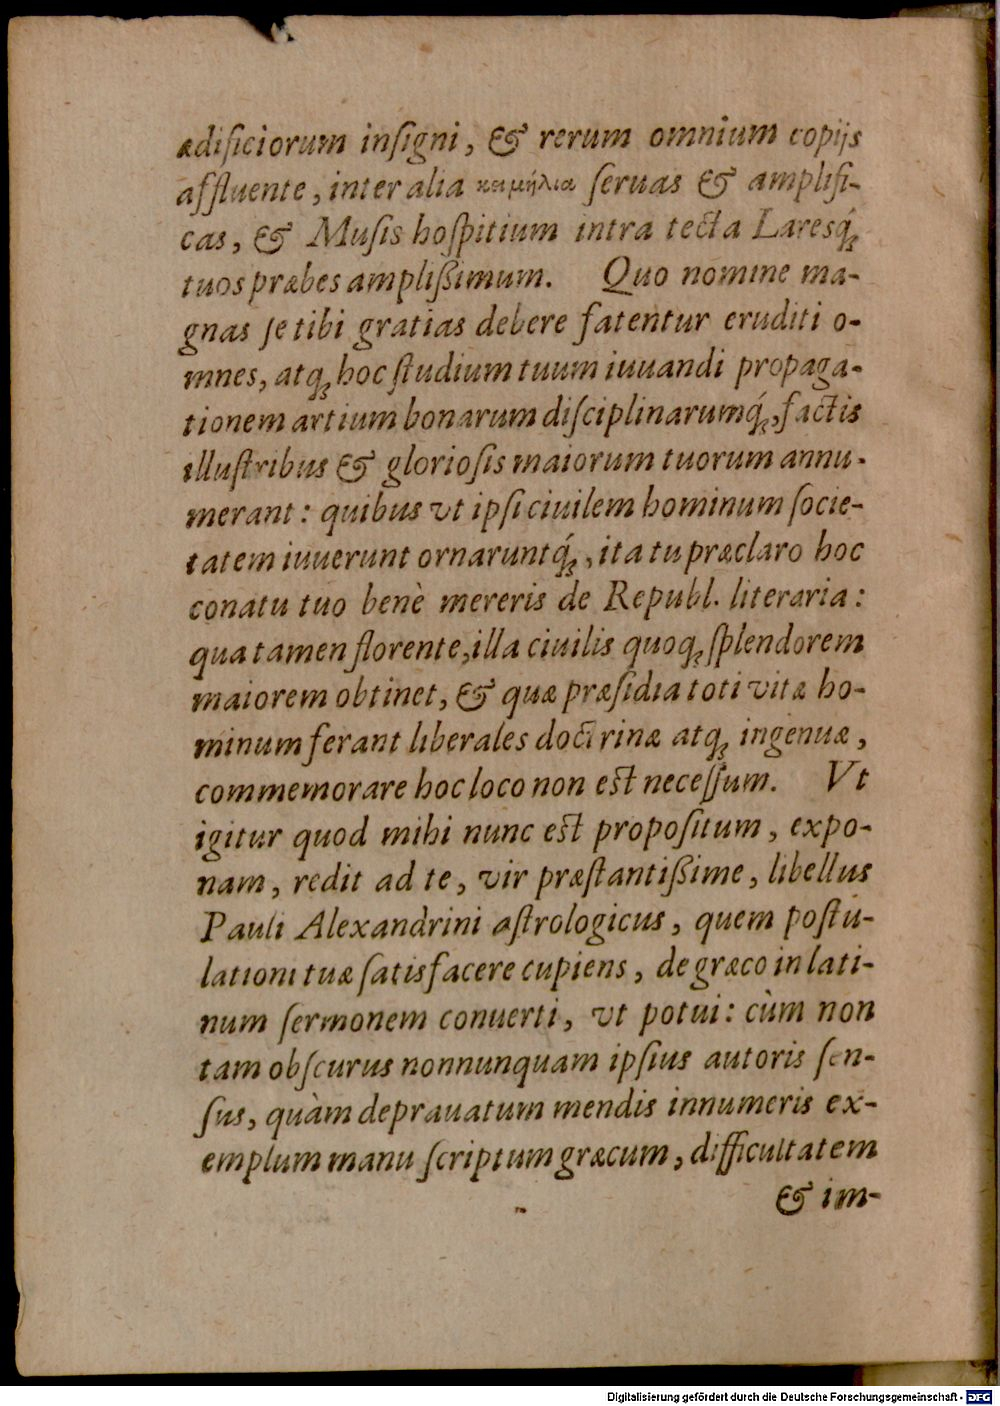 ædificiorum inſigni, & rerum omnium copijs
affluente, inter alia κειμήλια ſeruas & amplifi-
cas, & Muſis hoſpitium intra tecta Laresq́;
tuos præbes ampliſsimum. Quo nomine ma-
gnas ſe tibi gratias debere fatentur eruditi o-
mnes, atq; hoc ſtudium tuum iuuandi propaga-
tionem artium bonarum diſciplinarumq́;, factis
illuſtribus & glorioſis maiorum tuorum annu-
merant: quibus vt ipſi ciuilem hominum ſocie-
tatem iuuerunt ornaruntq́;, ita tu præclaro hoc
conatu tuo benè mereris de Republ. literaria:
qua tamen florente, illa ciuilis quoq; ſplendorem
maiorem obtinet, & quæ præſidia toti vitæ ho-
minum ferant liberales doctrinæ atq; ingenuæ,
commemorare hoc loco non est neceſſum. Vt
igitur quod mihi nunc est propoſitum, expo-
nam, redit ad te, vir præſtantiſsime, libellus
Pauli Alexandrini aſtrologicus, quem poſtu-
lationi tuæ ſatisfacere cupiens, de græco in lati-
num ſermonem conuerti, vt potui: cùm non
tam obſcurus nonnunquam ipſius autoris ſen-
ſus, quàm deprauatum mendis innumeris ex-
emplum manu ſcriptum græcum, difficultatem
& im-
Digitalisierung gefördert durch die Deutsche Forschungsgemeinschaft - DFG